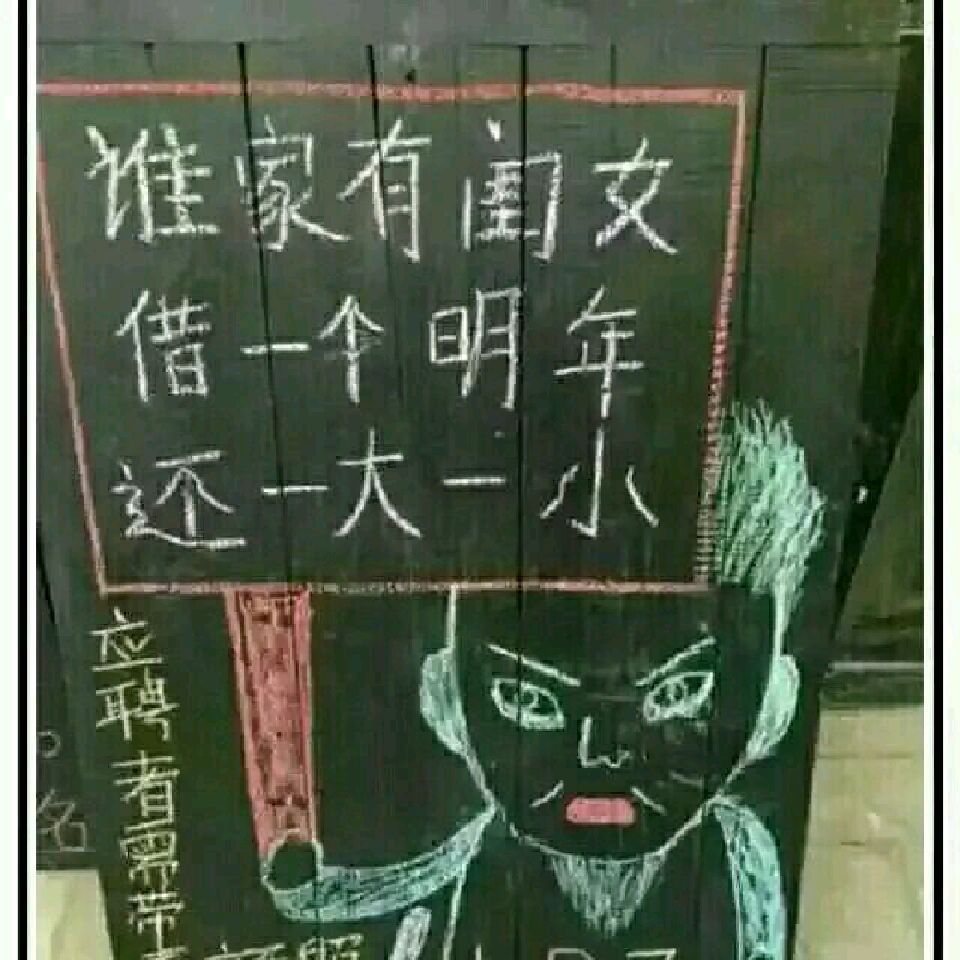 谁家有闺女
借一个明年
还一大一小
应聘者需带
名
照